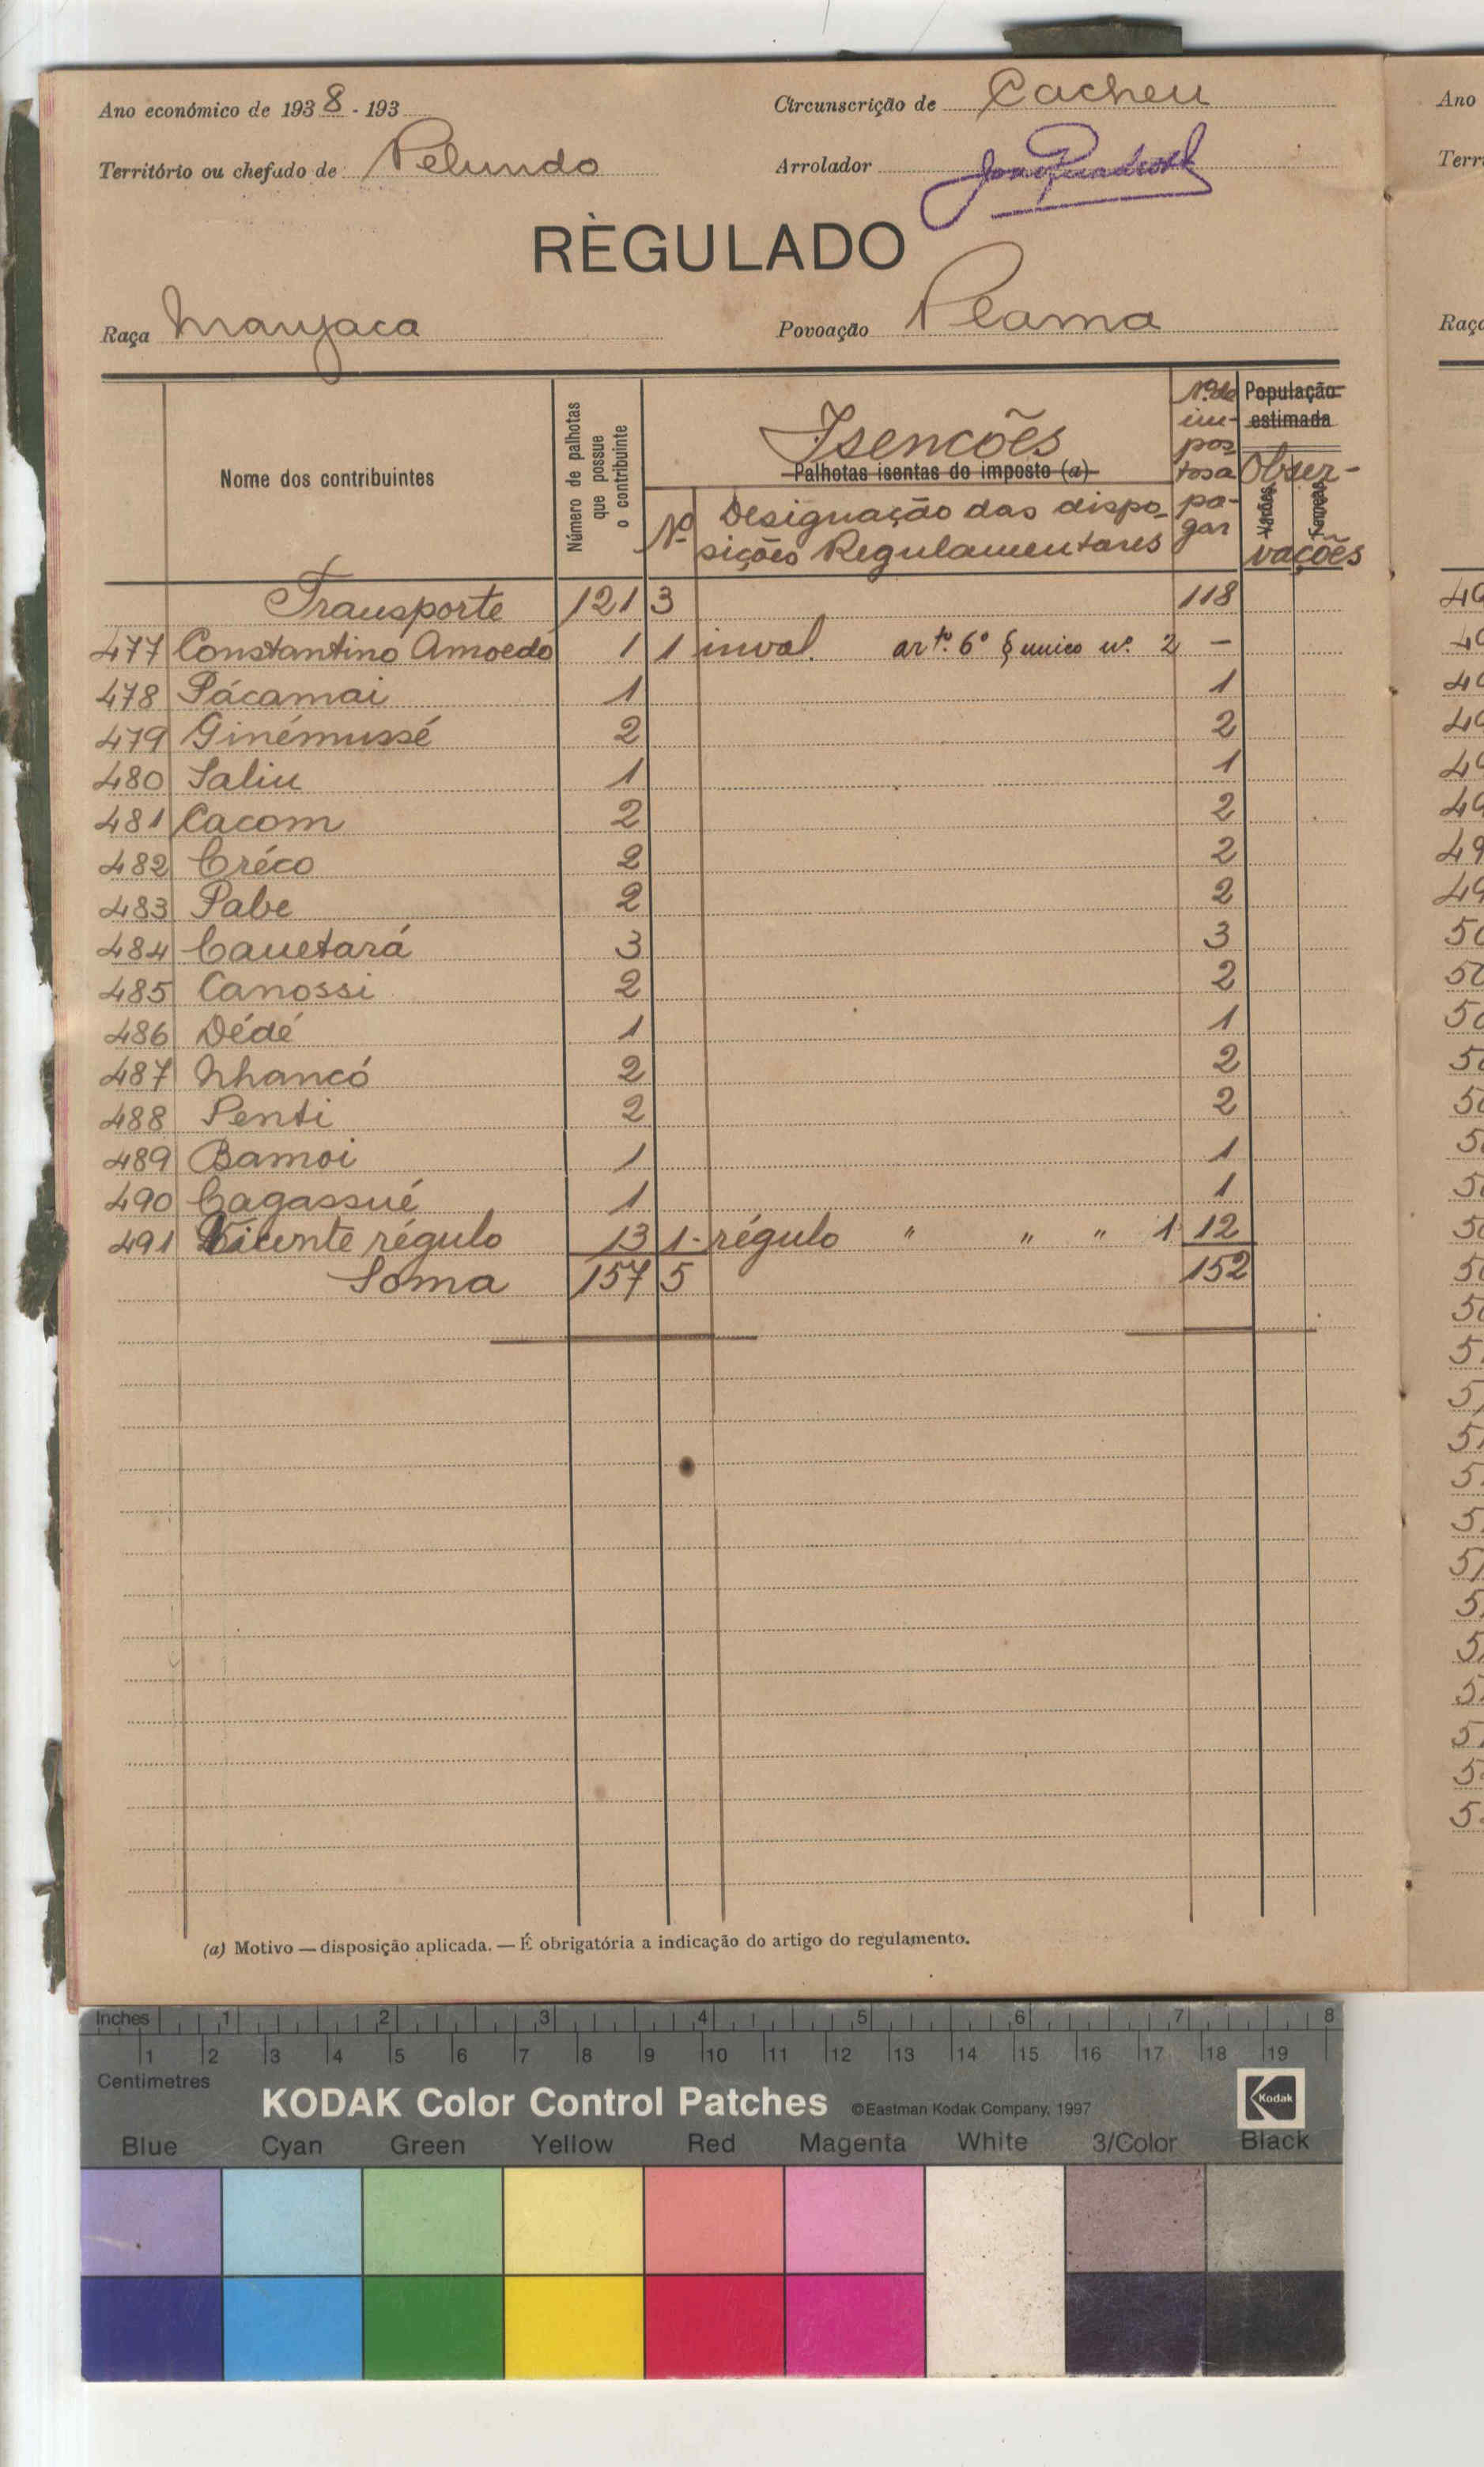 Ano económico de 1938 - 193
Circunscrição de Cacheu
Território ou chefado de Pelundo
Arrolador
RÈGULADO
Raça Manjaca
Povoação Plama
Nome dos contribuintes
Número de palhotas
que possue
o contribuinte
Isencões
Palhotas isentas do imposto (a)
Nº
Designação das dispo-
sições Regulamentares
Nº de
im-
pos-
tos a
pa-
gar
População
estimada
Obser-
vações
Varões
Femeas
Transporte 121 3 118
477 Constantino Amoedo 1 1 inval. artº. 6º § unico nº. 2 —
478 Pácamai 1 1
479 Ginémussé 2 2
480 Saliu 1 1
481 Cacom 2 2
482 Créco 2 2
483 Pabe 2 2
484 Cauetará 3 3
485 Canossi 2 2
486 Dédé 1 1
487 Nhancó 2 2
488 Penti 2 2
489 Bamoi 1 1
490 Cagassué 1 1
491 Vicente régulo 13 1 - régulo " " " 1 12
Soma 157 5 152
(a) Motivo — disposição aplicada. — É obrigatória a indicação do artigo do regulamento.
Ano
Terr
Raç
Inches 1 2 3 4 5 6 7 8
1 2 3 4 5 6 7 8 9 10 11 12 13 14 15 16 17 18 19
Centimetres
KODAK Color Control Patches ©Eastman Kodak Company, 1997 Kodak
Blue Cyan Green Yellow Red Magenta White 3/Color Black